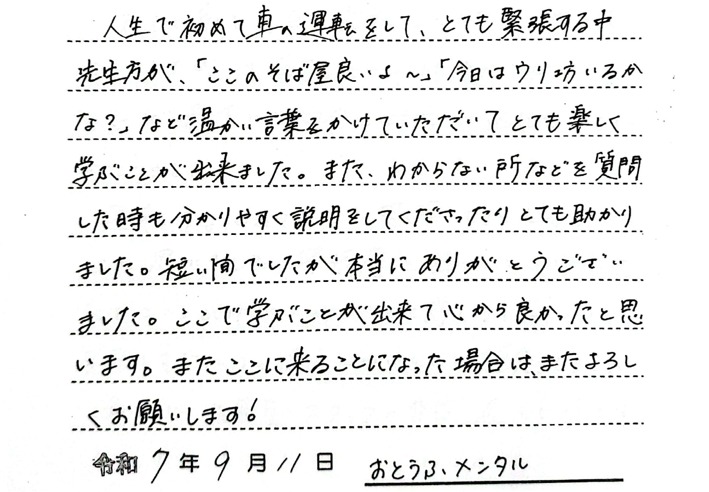 人生で初めて車の運転をして、とても緊張する中
先生方が、「ここのそば屋良いよ～」「今日はウリ坊いるか
な？」など温かい言葉をかけていただいてとても楽しく
学ぶことが出来ました。また、わからない所などを質問
した時も分かりやすく説明をしてくださったりとても助かり
ました。短い間でしたが本当にありがとうござい
ました。ここで学ぶことが出来て心から良かったと思
います。またここに来ることになった場合は、またよろし
くお願いします！
令和 7年 9月 11日 おとうふメンタル